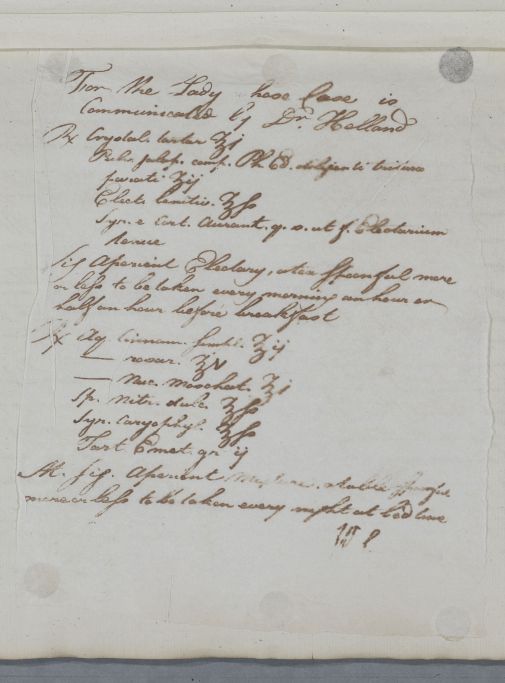 For the Lady hose Case is
Communicated by Dr. Holland
Rx Crystal. tartar ʒj
Pulv. jalap. comp. Ph. Ed. diligenti triturâ
parati ʒij
Elect. lenitiv. ℥ſs
Syr. e Cort. Aurant. q. s. ut f. Electarium
tenue
Sig Aperient Electary, a tea spoonful more
or leſs to be taken every morning an hour or
half an hour before breakfast
Rx Aq. Cinnam. simpl. ℥ij
— rosar. ℥v
— Nuc. moschat. ℥j
Sp. Nitr. dulc. ℥ſs
Syr. Caryophyl. ℥ſs
Tart Emet. gr ij
M. Sig. Aperient Mixture, a table spoonful
more or leſs to be taken every night at bed time